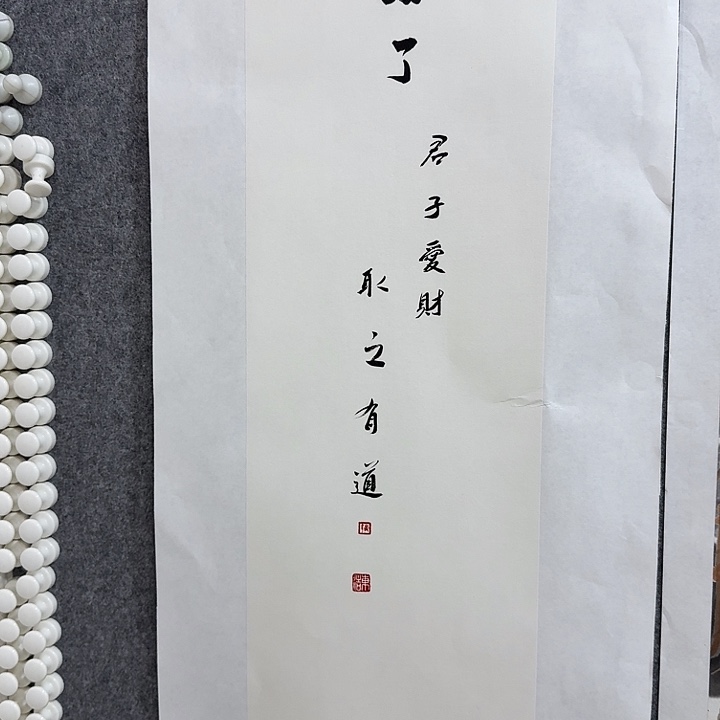 了
君子愛財
取之有道